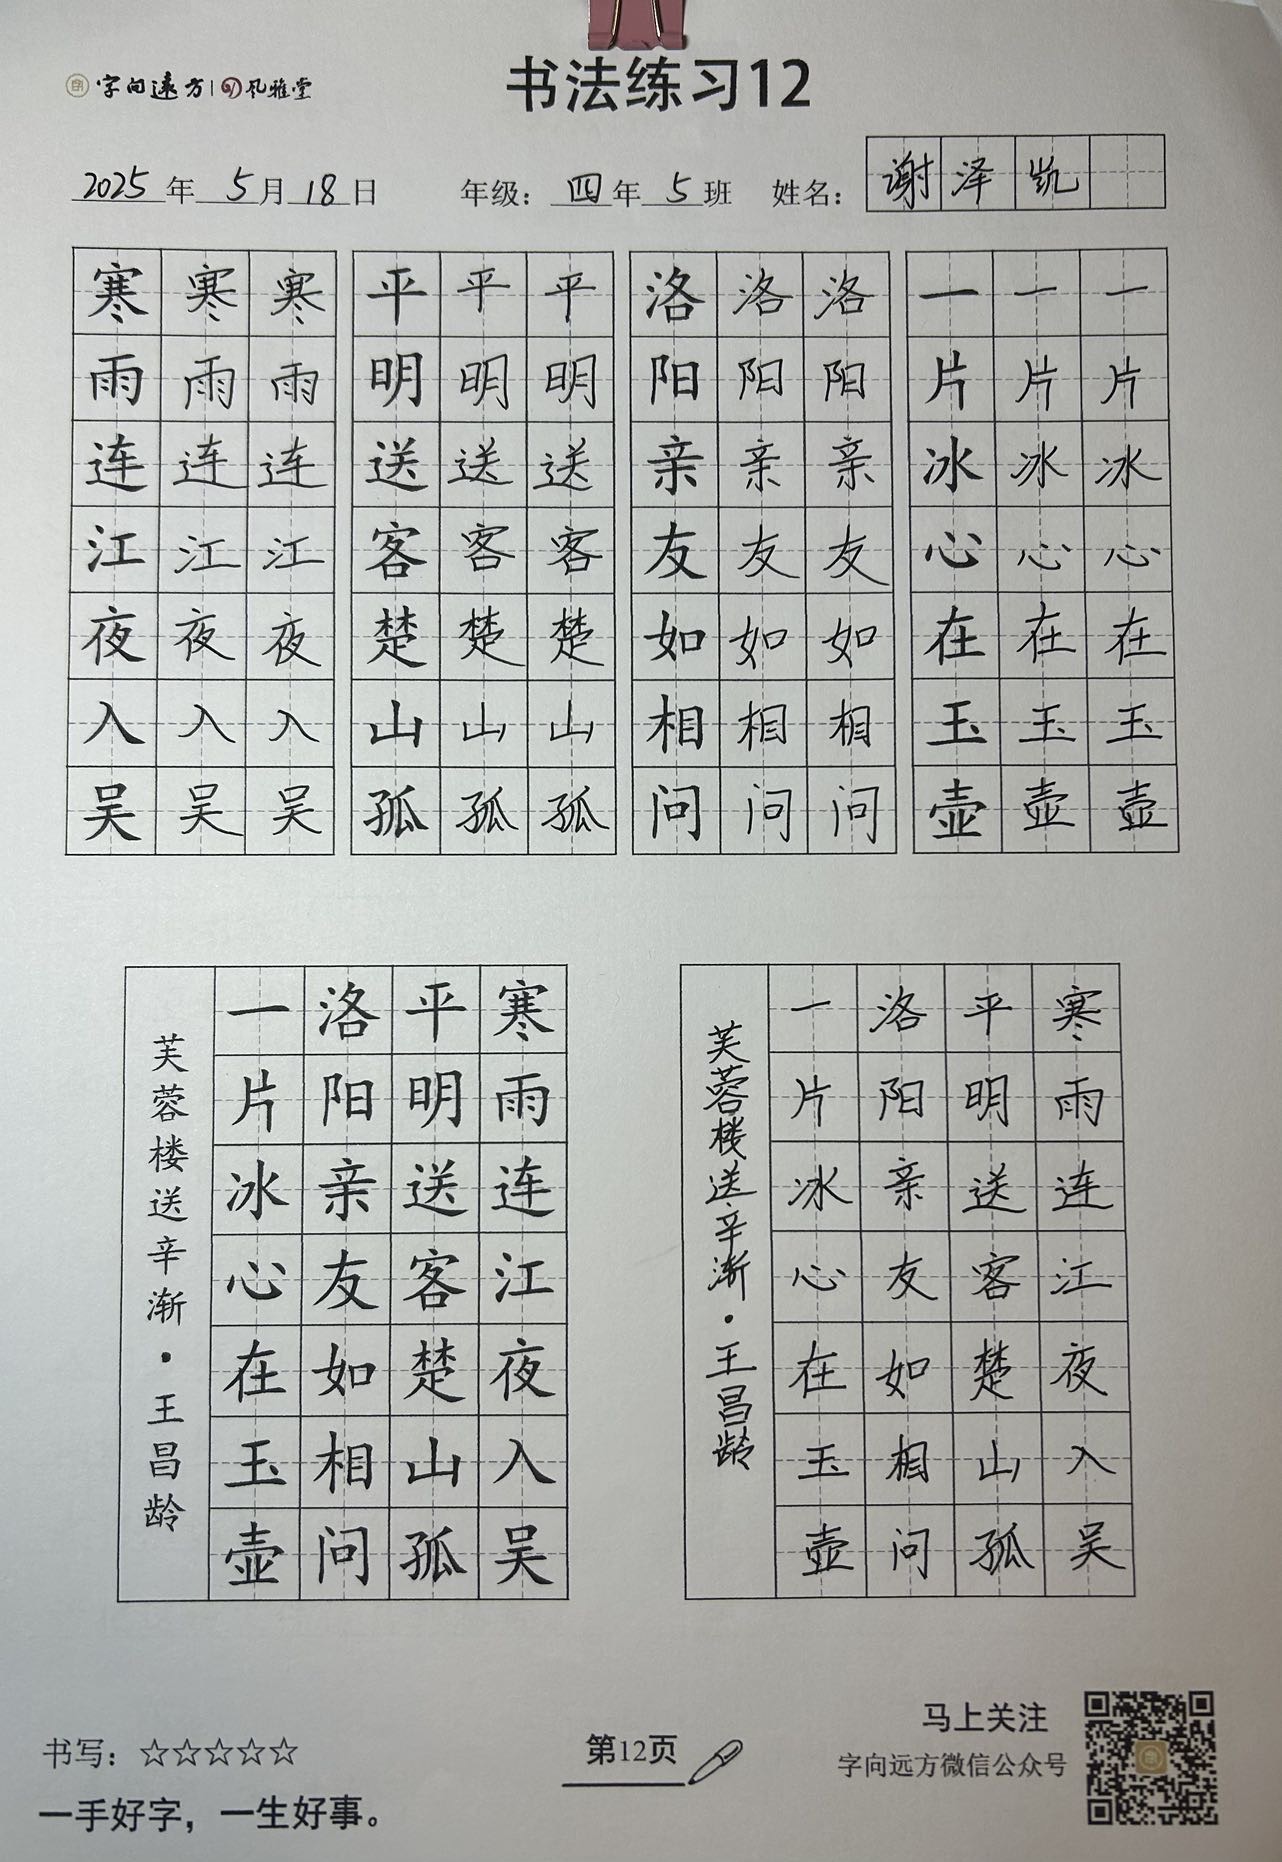 字向远方 | 风雅堂
书法练习12
2025年5月18日 年级：四年5班 姓名：谢泽凯
寒寒寒 平平平 洛洛洛 一一一
雨雨雨 明明明 阳阳阳 片片片
连连连 送送送 亲亲亲 冰冰冰
江江江 客客客 友友友 心心心
夜夜夜 楚楚楚 如如如 在在在
入入入 山山山 相相相 玉玉玉
吴吴吴 孤孤孤 问问问 壶壶壶
寒雨连江夜入吴
平明送客楚山孤
洛阳亲友如相问
一片冰心在玉壶
芙蓉楼送辛渐·王昌龄
寒雨连江夜入吴
平明送客楚山孤
洛阳亲友如相问
一片冰心在玉壶
芙蓉楼送辛渐·王昌龄
书写：☆☆☆☆☆
一手好字，一生好事。
第12页
马上关注
字向远方微信公众号